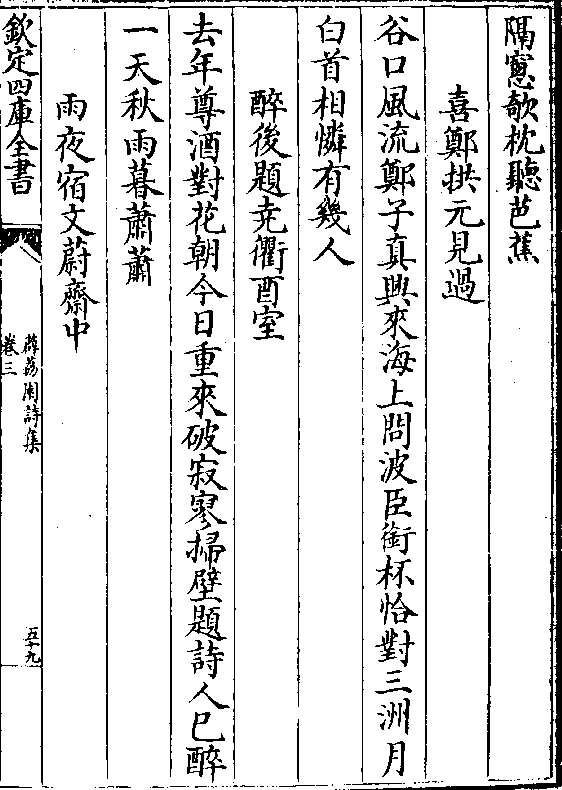 隔窻欹枕聽芭蕉
喜鄭拱元見過
谷口風流鄭子真興來海上問波臣銜杯恰對三洲月
白首相憐有幾人
醉後題尭衢酉室
去年尊酒對花朝今日重來破寂寥掃壁題詩人已醉
一天秋雨暮蕭蕭
雨夜宿文蔚齋中
欽定四庫全書
薜荔園詩集
卷三
五十九